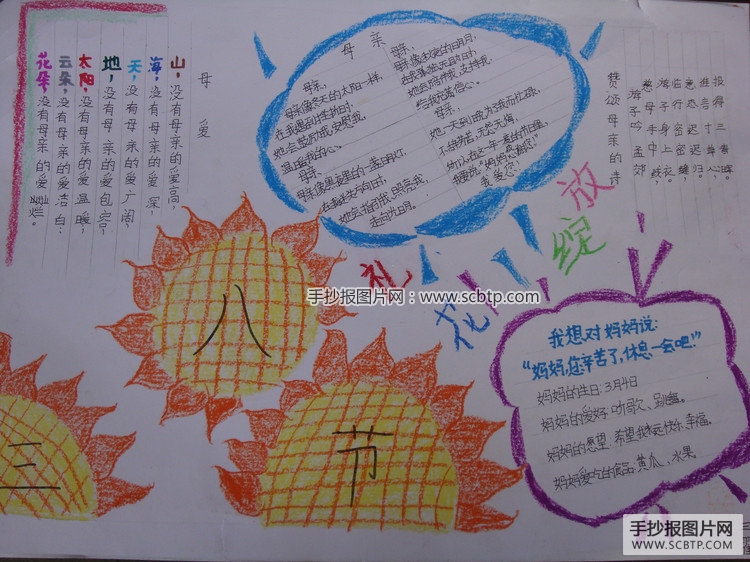 母爱
山，没有母亲的爱高，
海，没有母亲的爱深，
天，没有母亲的爱广阔，
地，没有母亲的爱包容，
太阳，没有母亲的爱温暖，
云朵，没有母亲的爱洁白，
花朵，没有母亲的爱灿烂。
母亲
母亲，
母亲像冬天的太阳一样，
在我遇到挫折时，
她会鼓励我，安慰我，
温暖我的心。
母亲，
母亲像黑夜里的一盏明灯，
在我迷失方向时，
她会指引我，照亮我，
走向光明。
母亲，
母亲像
在我孤独无助时，
她会陪伴我，支持我，
给我充满信心。
母亲，
她一天到晚为了我而忙碌，
不怕劳苦，无怨无悔，
我要说："妈妈感谢您！
我爱您！"
赞颂母亲的诗
游子吟 孟郊
慈母手中线，
游子身上衣。
临行密密缝，
意恐迟迟归。
谁言寸草心，
报得三春晖。
礼花绽放
三八节
手抄报图片网：www.scbtp.com
我想对妈妈说：
"妈妈，您辛苦了，休息一会吧！"
妈妈的生日：3月4日
妈妈的爱好：听歌、跳舞。
妈妈的愿望：希望我永远快乐、幸福。
妈妈爱吃的食品：黄瓜、水果
手抄报图片网
WWW.SCBTP.COM